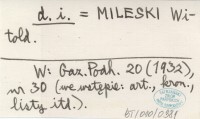 d. i. = MILESKI Wi-
told.
W: Gaz. Podh. 20 (1932),
nr 30 (we wstępie: art., kron.,
listy itd.).
BT/010/0381